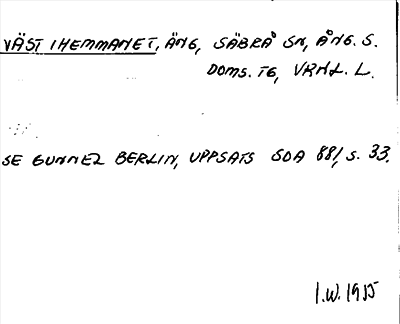 VÄST I HEMMANET, ÄNG, SÄBRÅ SN, ÅNG. S.
DOMS. TG, VRML. L.
SE GUNNEL BERLIN, UPPSATS SOA 881, S. 33.
I.W. 1915